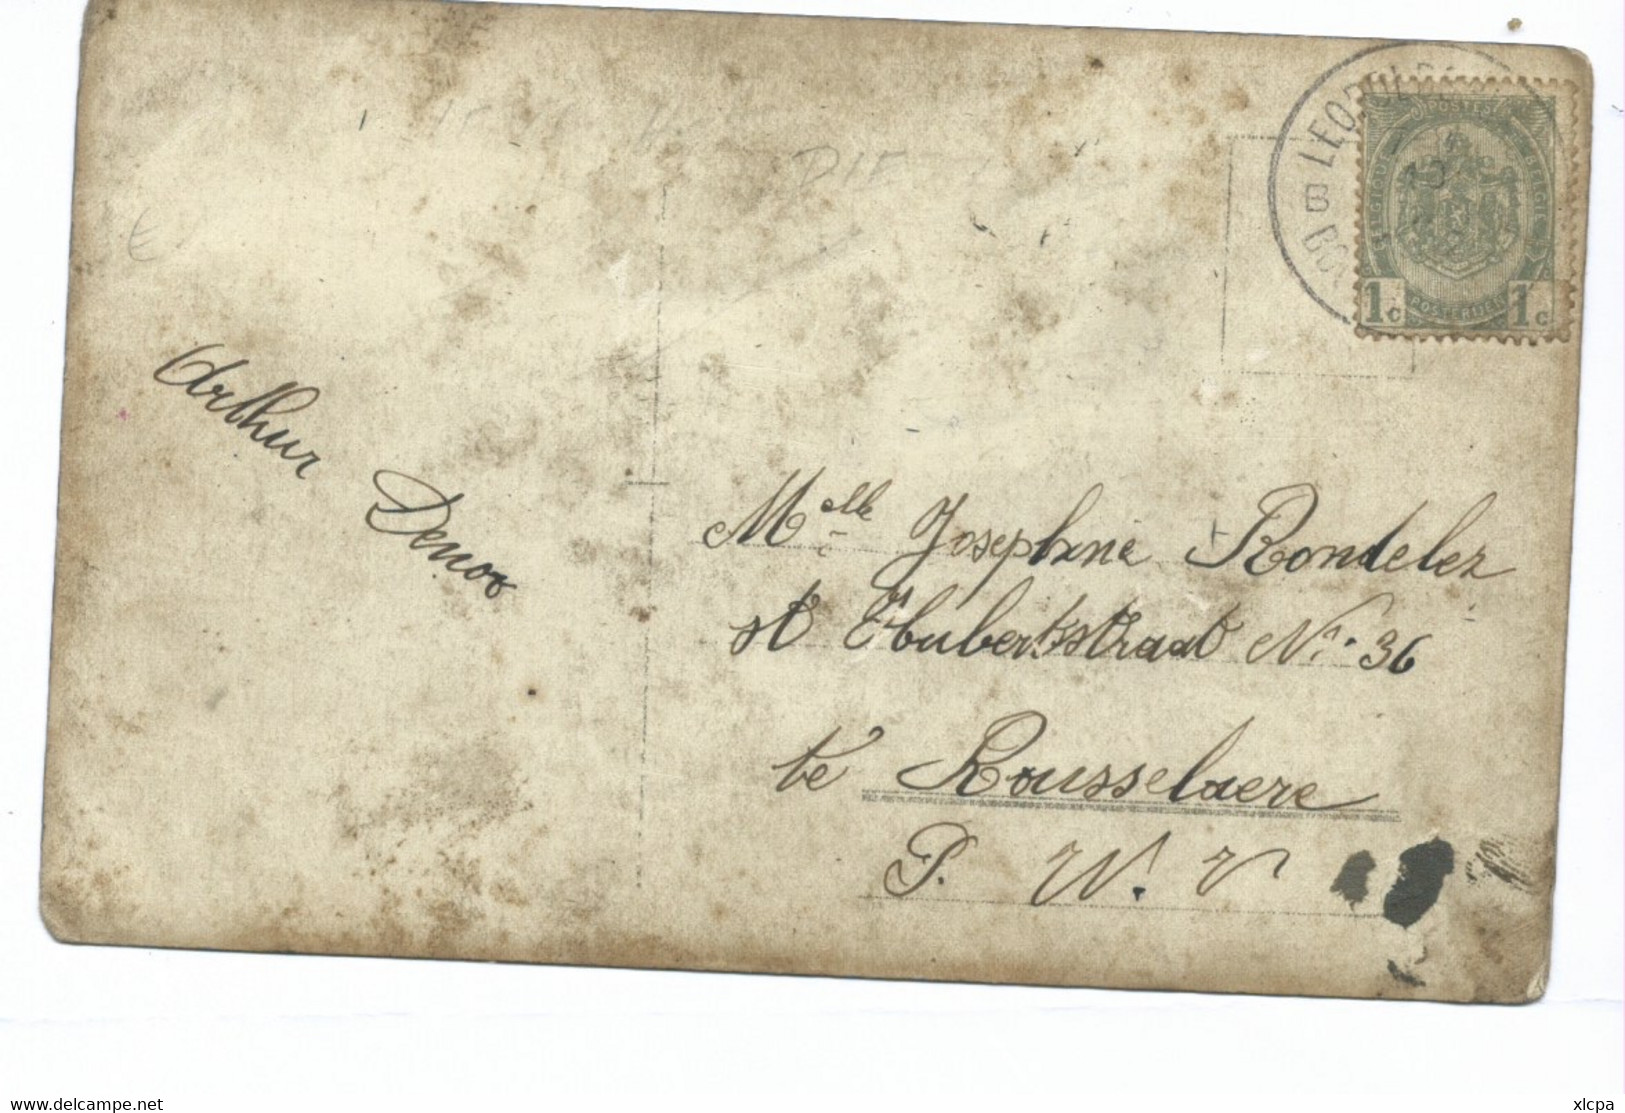 DIE
LEOPOLD
B BO
POSTES
BELGIQUE
BELGIE
POSTERIJEN
1c 1c
€
Arthur
Denoo
Melle Josephine Rondelez
st Hubertsstraat No. 36
te Rousselaere
P. W. V
www.delcampe.net
xlcpa